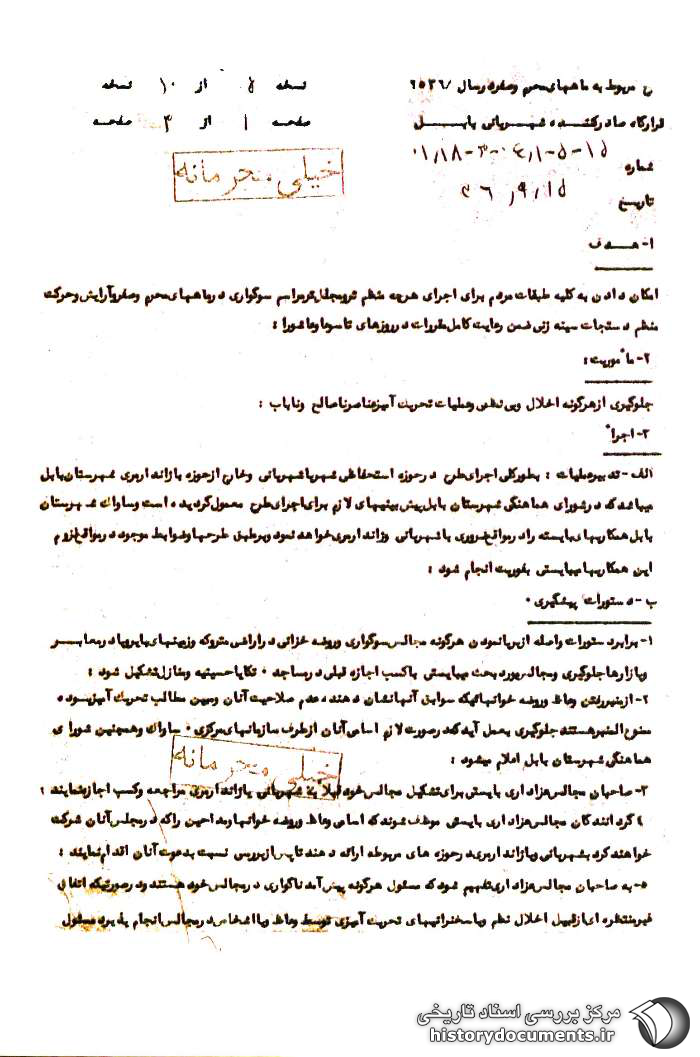 ح مربوط به ماههای محرم وصفر در سال ۲۵۳۶/ نسخه ۵ از ۱۰ نسخه
قرارگاه صادرکننده شهربانی بابل صفحه ۱ از ۳ صفحه
شماره ۱۵-۵-۰۱/۱۸-۳-۰۴/۱
تاریخ ۳۶/۹/۱۵
خیلی محرمانه
۱- هدف
امکان دادن به کلیه طبقات مردم برای اجرای هرچه منظم تر ومجلل تر مراسم سوگواری در ماههای محرم وصفر وآرایش وحرکت
منظم دستجات سینه زنی ضمن رعایت کامل مقررات در روزهای تاسوعا وعاشورا :
۲- مأموریت :
جلوگیری از هرگونه اخلال وبی نظمی وعملیات تحریک آمیز عناصر ناصالح وناباب :
۳- اجراء
الف - تدبیر عملیات : بطورکلی اجرای طرح در حوزه استحفاظی شهر با شهربانی وخارج از حوزه با ژاندارمری شهرستان بابل
میباشد که در شورای هماهنگی شهرستان بابل پیش بینیهای لازم برای اجرای طرح معمول گردیده است وساواک شهرستان
بابل همکاریهای بایسته را در مواقع ضروری با شهربانی وژاندارمری خواهد نمود وبر طبق طرحها وضوابط موجود در مواقع لزوم
این همکاریها میبایستی بفوریت انجام شود :
ب - دستورات پیشگیری .
۱- برابر دستورات واصله از برپا نمودن هرگونه مجالس سوگواری وروضه خوانی در اراضی متروکه وزمینهای بایر ویا در معابر
وبازارها جلوگیری ومجالس مورد بحث میبایستی با کسب اجازه قبلی در مساجد . تکایا حسینیه ومنازل تشکیل شود :
۲- از منبر رفتن وعاظ وروضه خوانهائیکه سوابق آنها نشان دهنده عدم صلاحیت آنان وبیان مطالب تحریک آمیز بوده
ممنوع المنبر هستند جلوگیری بعمل آید که در صورت لازم اسامی آنان از طرف سازمانهای مرکزی . ساواک وهمچنین شورای
هماهنگی شهرستان بابل اعلام میشود :
خیلی محرمانه
۳- صاحبان مجالس عزاداری بایستی برای تشکیل مجالس خود قبلا به شهربانی یا ژاندارمری مراجعه وکسب اجازه نمایند :
۴ گردانندگان مجالس عزاداری بایستی موظف شوند که اسامی وعاظ وروضه خوانها ومداحین را که در مجلس آنان شرکت
خواهند کرد بشهربانی ویا ژاندارمری در حوزه های مربوطه ارائه دهند تا پس از بررسی نسبت بدعوت آنان اقدام نمایند :
۵- به صاحبان مجالس عزاداری تفهیم شود که مسئول هرگونه پیش آمد ناگواری در مجالس خود هستند ودر صورتیکه اتفاق
غیر منتظره ای از قبیل اخلال نظم ویا سخنرانیهای تحریک آمیزی توسط وعاظ ویا اشخاص در مجالس انجام پذیرد مسئول
مرکز بررسی اسناد تاریخی
historydocuments.ir